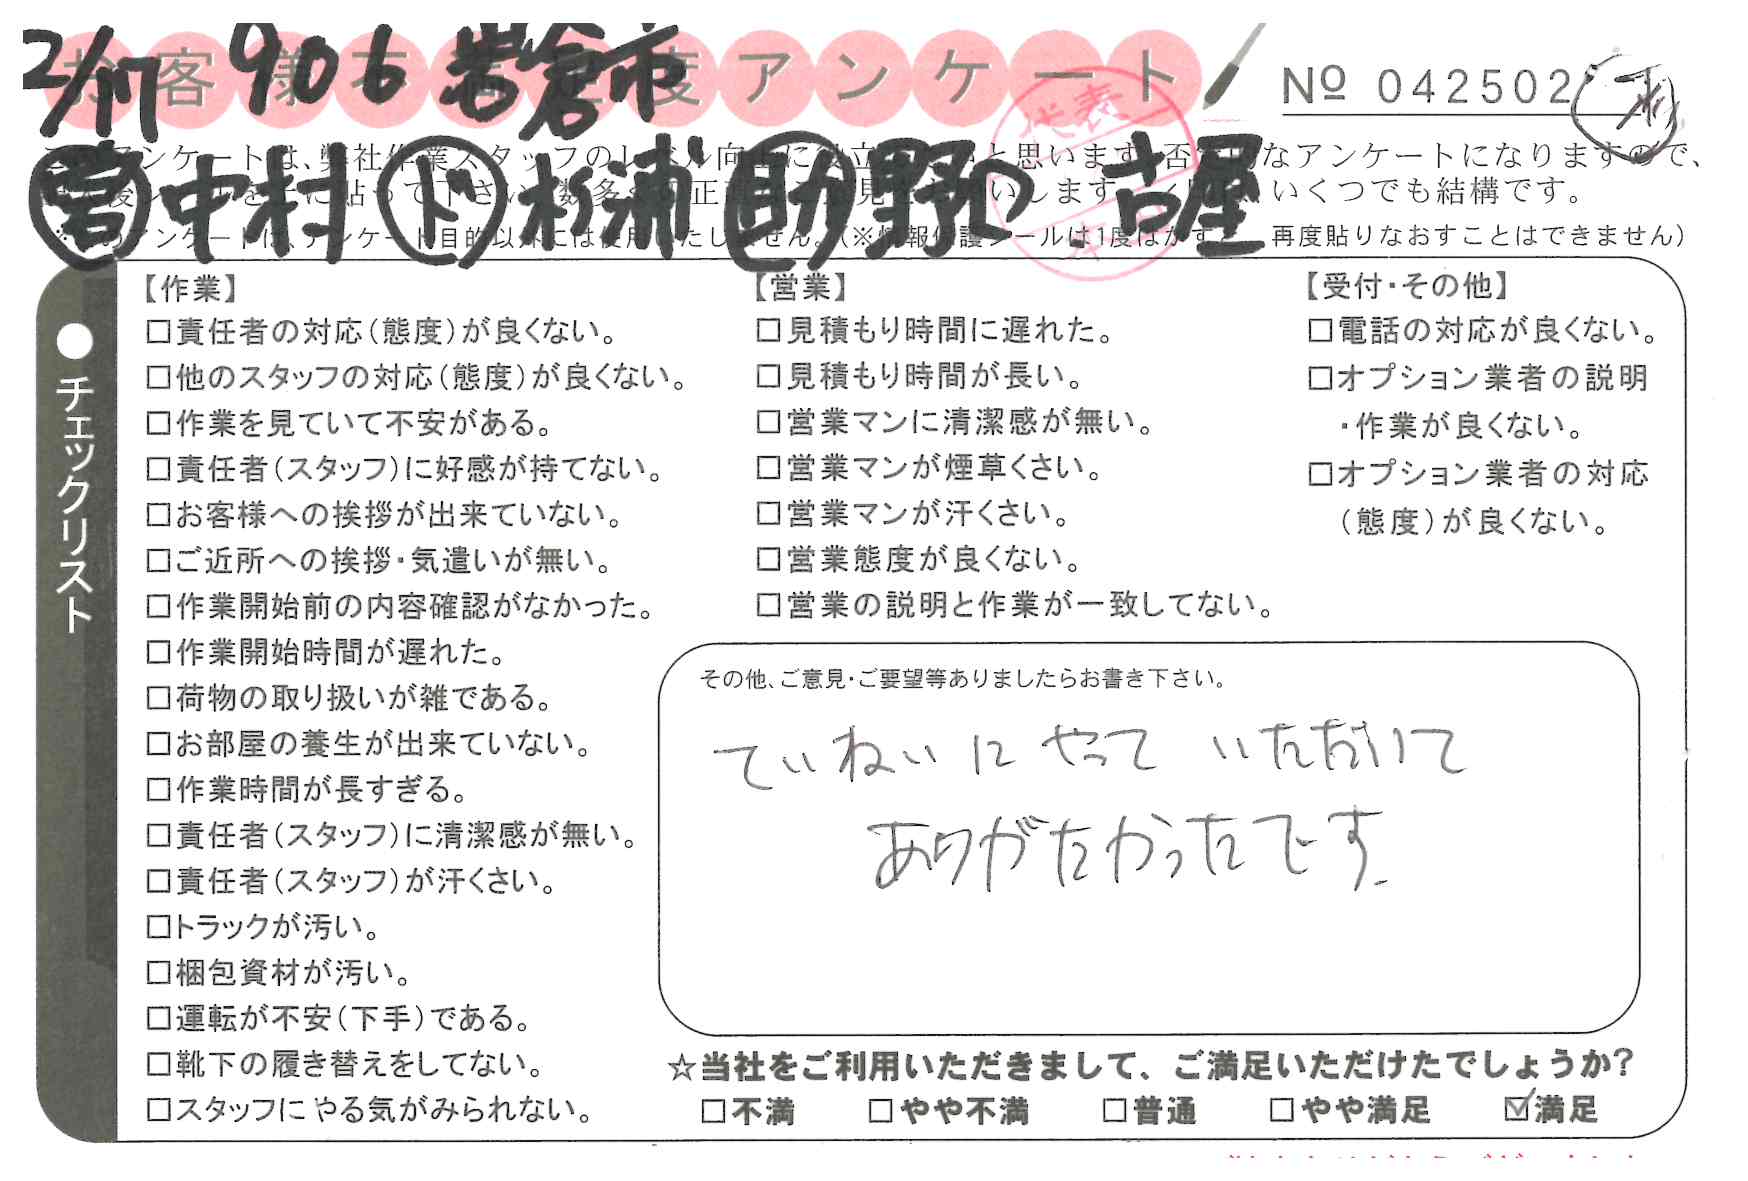 2/17 906 岩倉市
お客様不満足度アンケート
No 042502
営 中村 ド 杉浦 助 野口 古屋
代表
【作業】
□責任者の対応(態度)が良くない。
□他のスタッフの対応(態度)が良くない。
□作業を見ていて不安がある。
□責任者(スタッフ)に好感が持てない。
□お客様への挨拶が出来ていない。
□ご近所への挨拶・気遣いが無い。
□作業開始前の内容確認がなかった。
□作業開始時間が遅れた。
□荷物の取り扱いが雑である。
□お部屋の養生が出来ていない。
□作業時間が長すぎる。
□責任者(スタッフ)に清潔感が無い。
□責任者(スタッフ)が汗くさい。
□トラックが汚い。
□梱包資材が汚い。
□運転が不安(下手)である。
□靴下の履き替えをしてない。
□スタッフにやる気がみられない。
【営業】
□見積もり時間に遅れた。
□見積もり時間が長い。
□営業マンに清潔感が無い。
□営業マンが煙草くさい。
□営業マンが汗くさい。
□営業態度が良くない。
□営業の説明と作業が一致してない。
【受付・その他】
□電話の対応が良くない。
□オプション業者の説明
・作業が良くない。
□オプション業者の対応
(態度)が良くない。
●チェックリスト
その他、ご意見・ご要望等ありましたらお書き下さい。
ていねいに やって いただいて
ありがたかったです.
☆当社をご利用いただきまして、ご満足いただけたでしょうか?
□不満 □やや不満 □普通 □やや満足 ☑満足